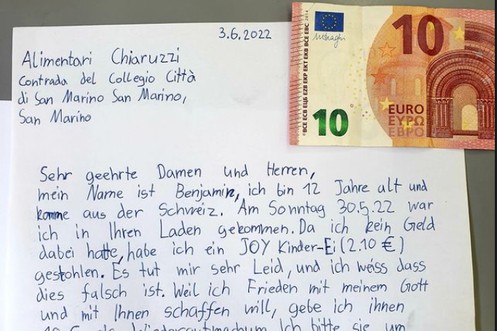 3.6.2022
Alimentari Chiaruzzi
Contrada del Collegio Città
di San Marino San Marino,
San Marino
10
10
EURO
ΕΥΡΩ
ЕВРО
Sehr geehrte Damen und Herren,
mein Name ist Benjamin, ich bin 12 Jahre alt und
komme aus der Schweiz. Am Sonntag 30.5.22 war
ich in Ihren Laden gekommen. Da ich kein Geld
dabei hatte, habe ich ein JOY Kinder-Ei (2.10 €)
gestohlen. Es tut mir sehr Leid, und ich weiss dass
dies falsch ist. Weil ich Frieden mit meinem Gott
und mit Ihnen schaffen will, gebe ich ihnen
Ich bitte sie um